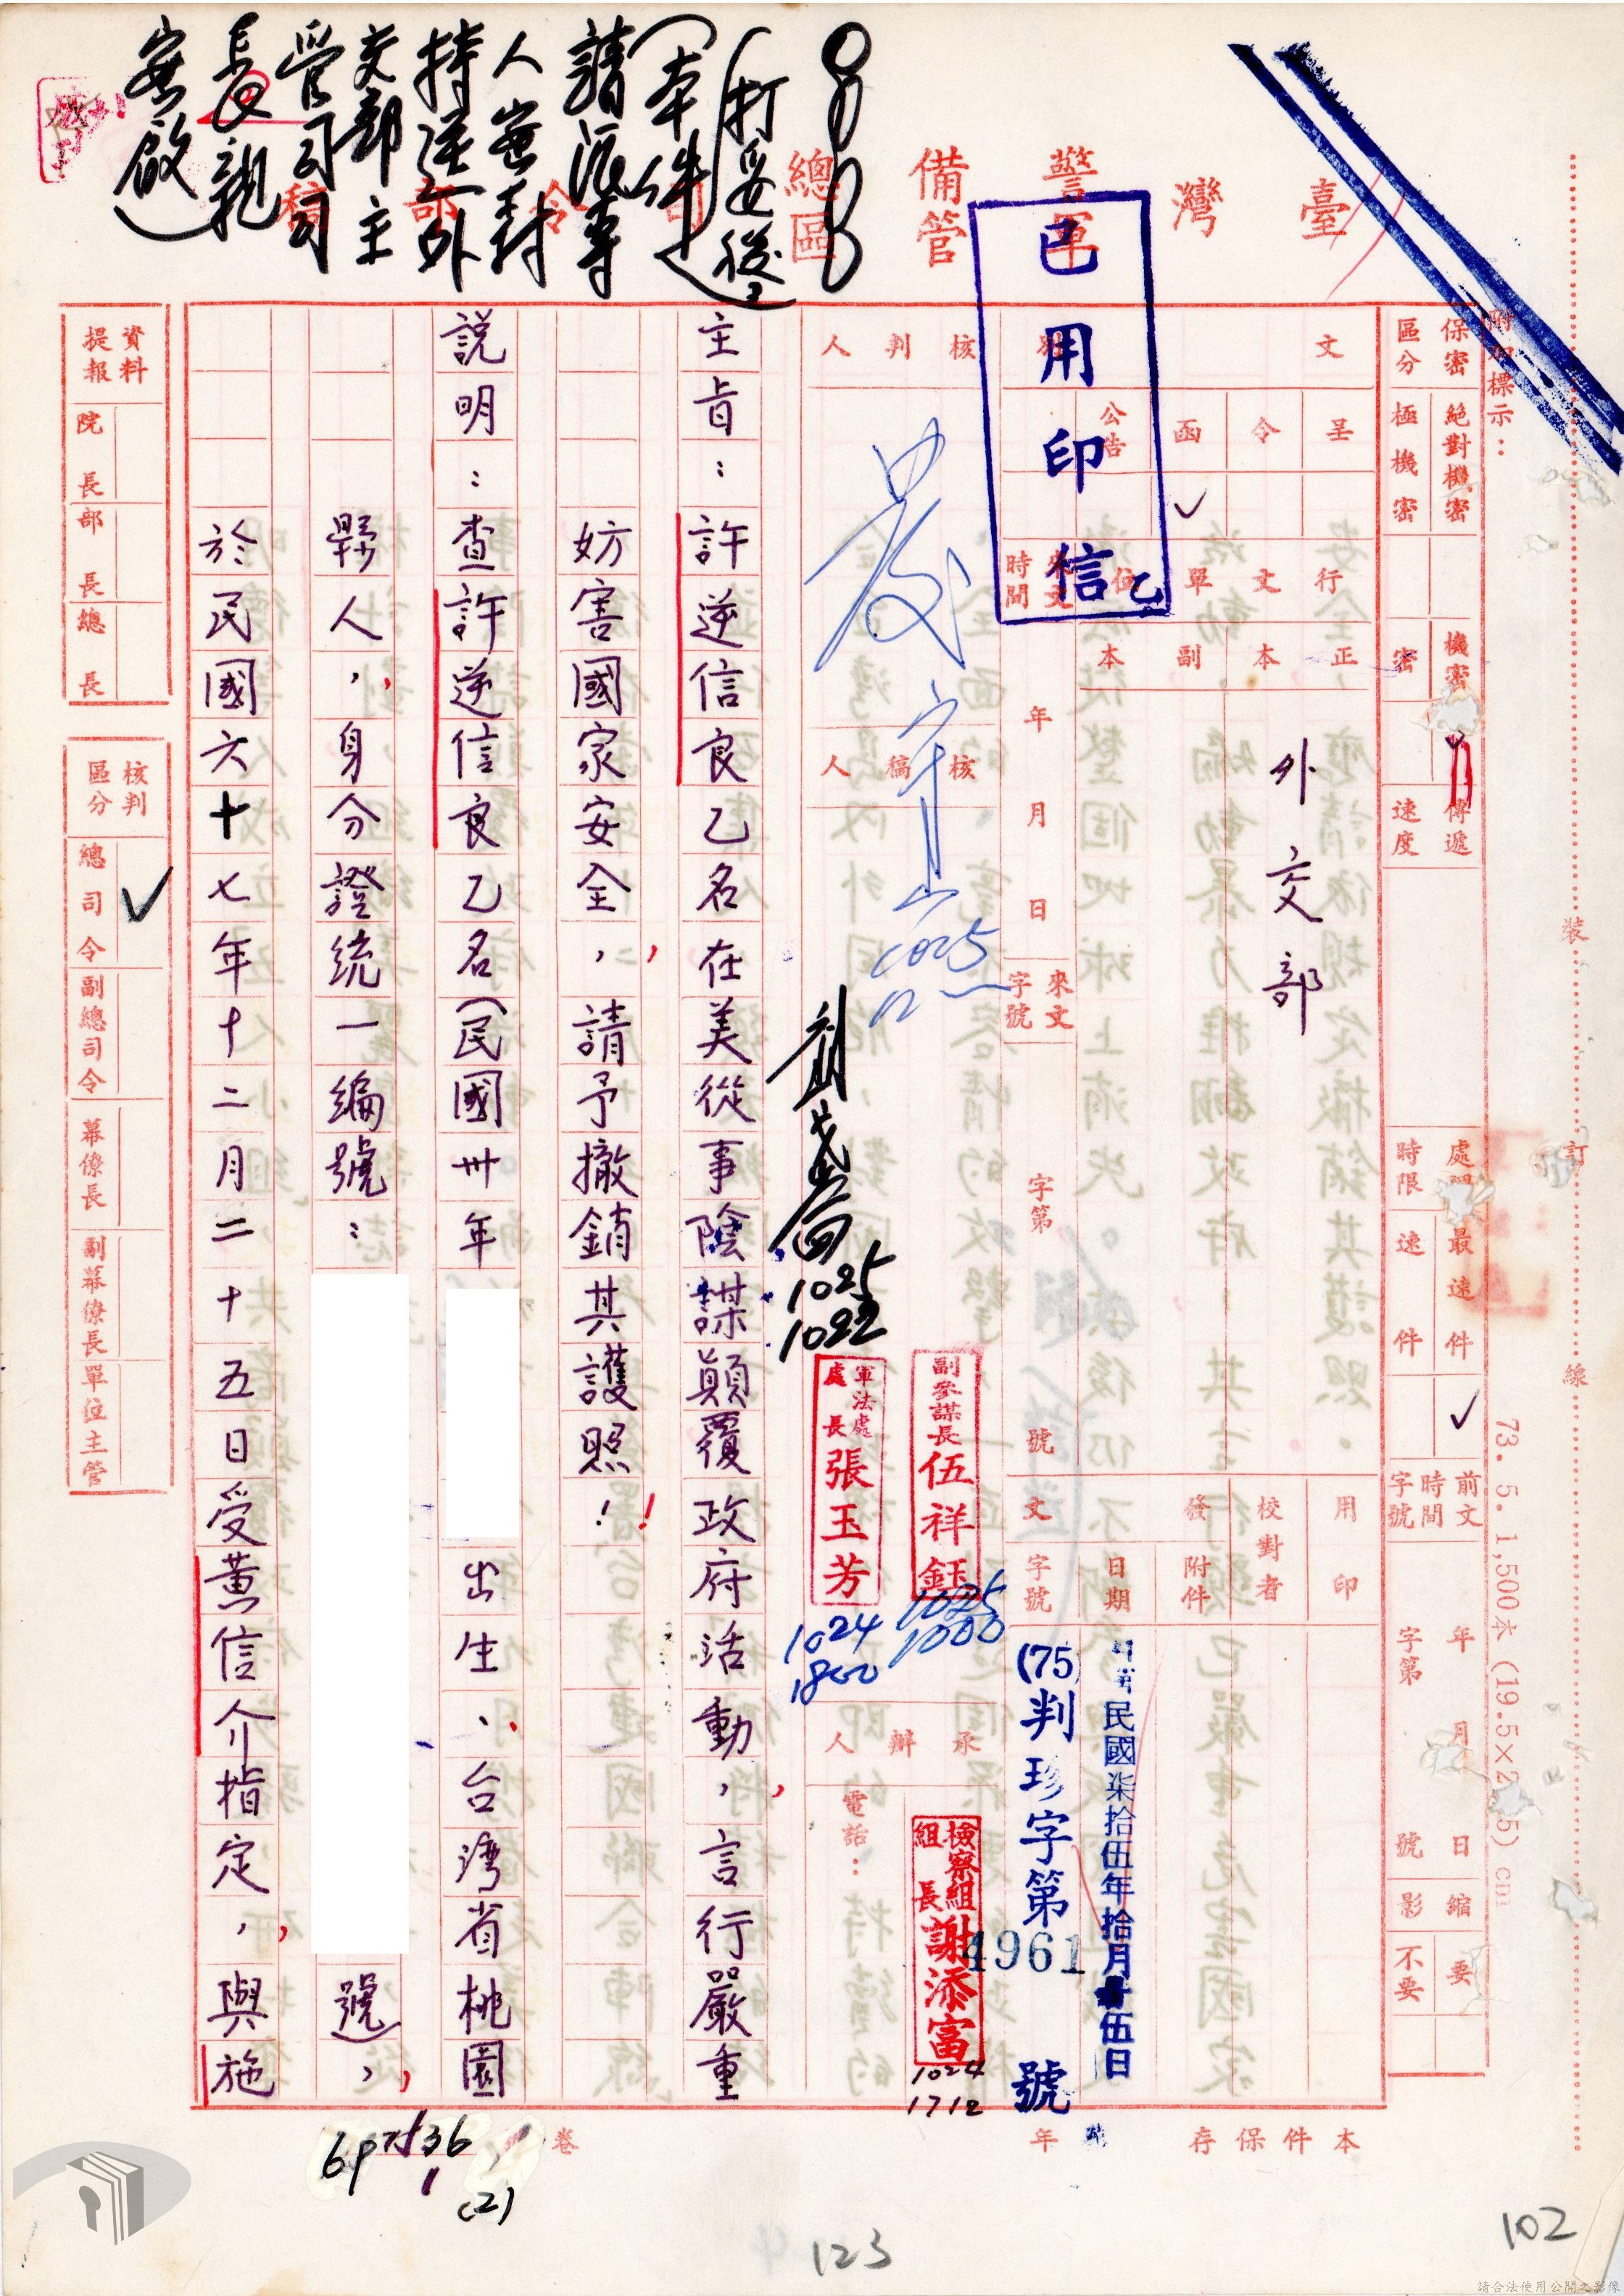 (打妥後
(本件
請派專
人密封
持送外
交部主
管司司
長親
密啟)
臺灣警備總司令部稿
軍管區
已用印信
乙
附加標示：
保密區分
絕對機密
極機密
機密
密
傳遞速度
處理時限
最速件
速件
前文時間字號
年月日
字第號
縮影
要
不要
文別
呈
令
函
公告
行文單位
正本
副本
外交部
來文時間
年月日
來文字號
字第號
用印
校對者
發文
附件
日期
字號
中華民國柒拾伍年拾月伍日
(75)判珍字第4961號
核判人
核稿人
1025
副參謀長伍祥鈺
1025
1000
檢察組組長謝添富
1024
1712
1025
1022
軍法處處長張玉芳
1024
1800
承辦人
電話：
主旨：許逆信良乙名在美從事陰謀顛覆政府活動，言行嚴重
妨害國家安全，請予撤銷其護照！
說明：查許逆信良乙名(民國卅年出生、台灣省桃園
縣人，身分證統一編號：號)，
於民國六十七年十二月二十五日受黃信介指定，與施
資料提報
院長
部長
總長
核判區分
總司令
副總司令
幕僚長
副幕僚長
單位主管
裝訂線
73. 5. 1,500本
本件保存年
卷
(2)
123
102
請合法使用公開之影像